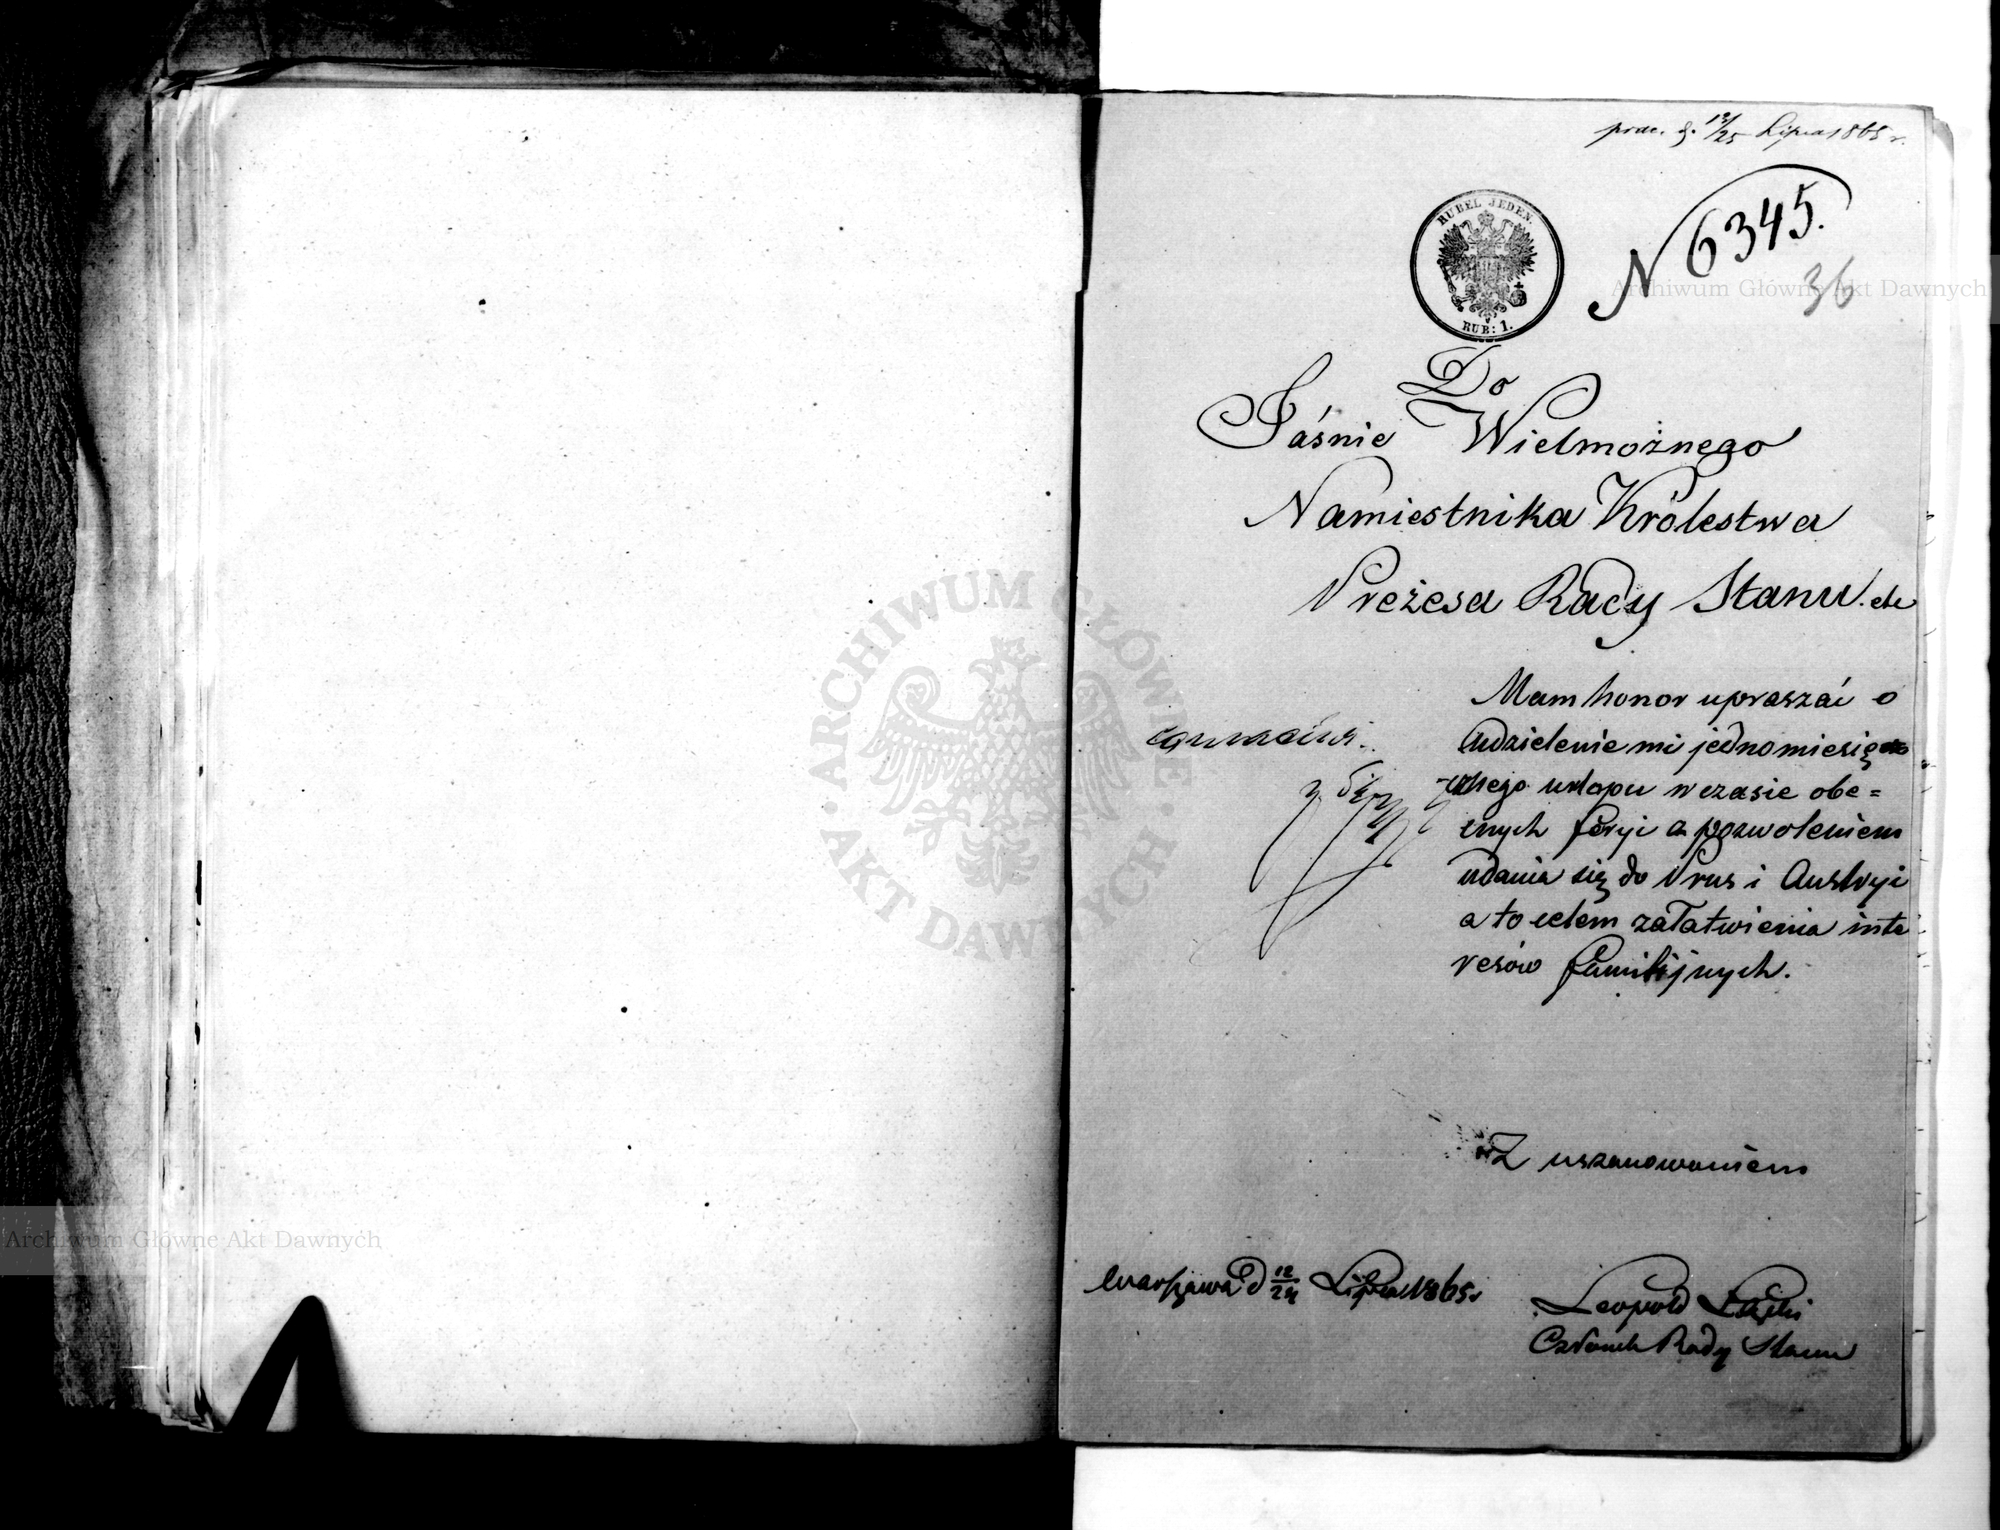 prae. d. 13/25 Lipca 1865 r.
RUBEL JEDEN.
RUB: 1.
N 6345.
36
Do
Jaśnie Wielmożnego
Namiestnika Królestwa
Prezesa Rady Stanu. etc
Mam honor upraszać o
udzielenie mi jednomiesię
cznego urlopu w czasie obe=
cnych feryi z pozwoleniem
udania się do Prus i Austryi
a to celem załatwienia inte
resów familijnych.
Z uszanowaniem
Warszawa d 12/24 Lipca 1865 r
Leopold
Członek Rady Stanu
ARCHIWUM GŁÓWNE AKT DAWNYCH
Archiwum Główne Akt Dawnych
Archiwum Główne Akt Dawnych